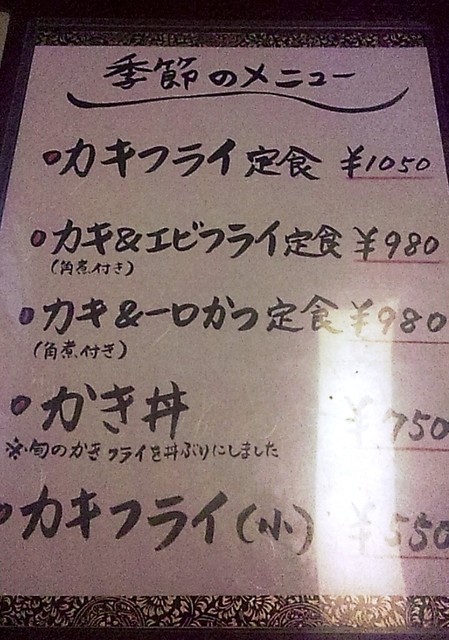 季節のメニュー
・カキフライ定食 ¥1050
・カキ&エビフライ定食 ¥980
(角煮付き)
・カキ&一口かつ定食 ¥980
(角煮付き)
・かき丼 ¥750
※旬のかきフライを丼ぶりにしました
・カキフライ(小) ¥550